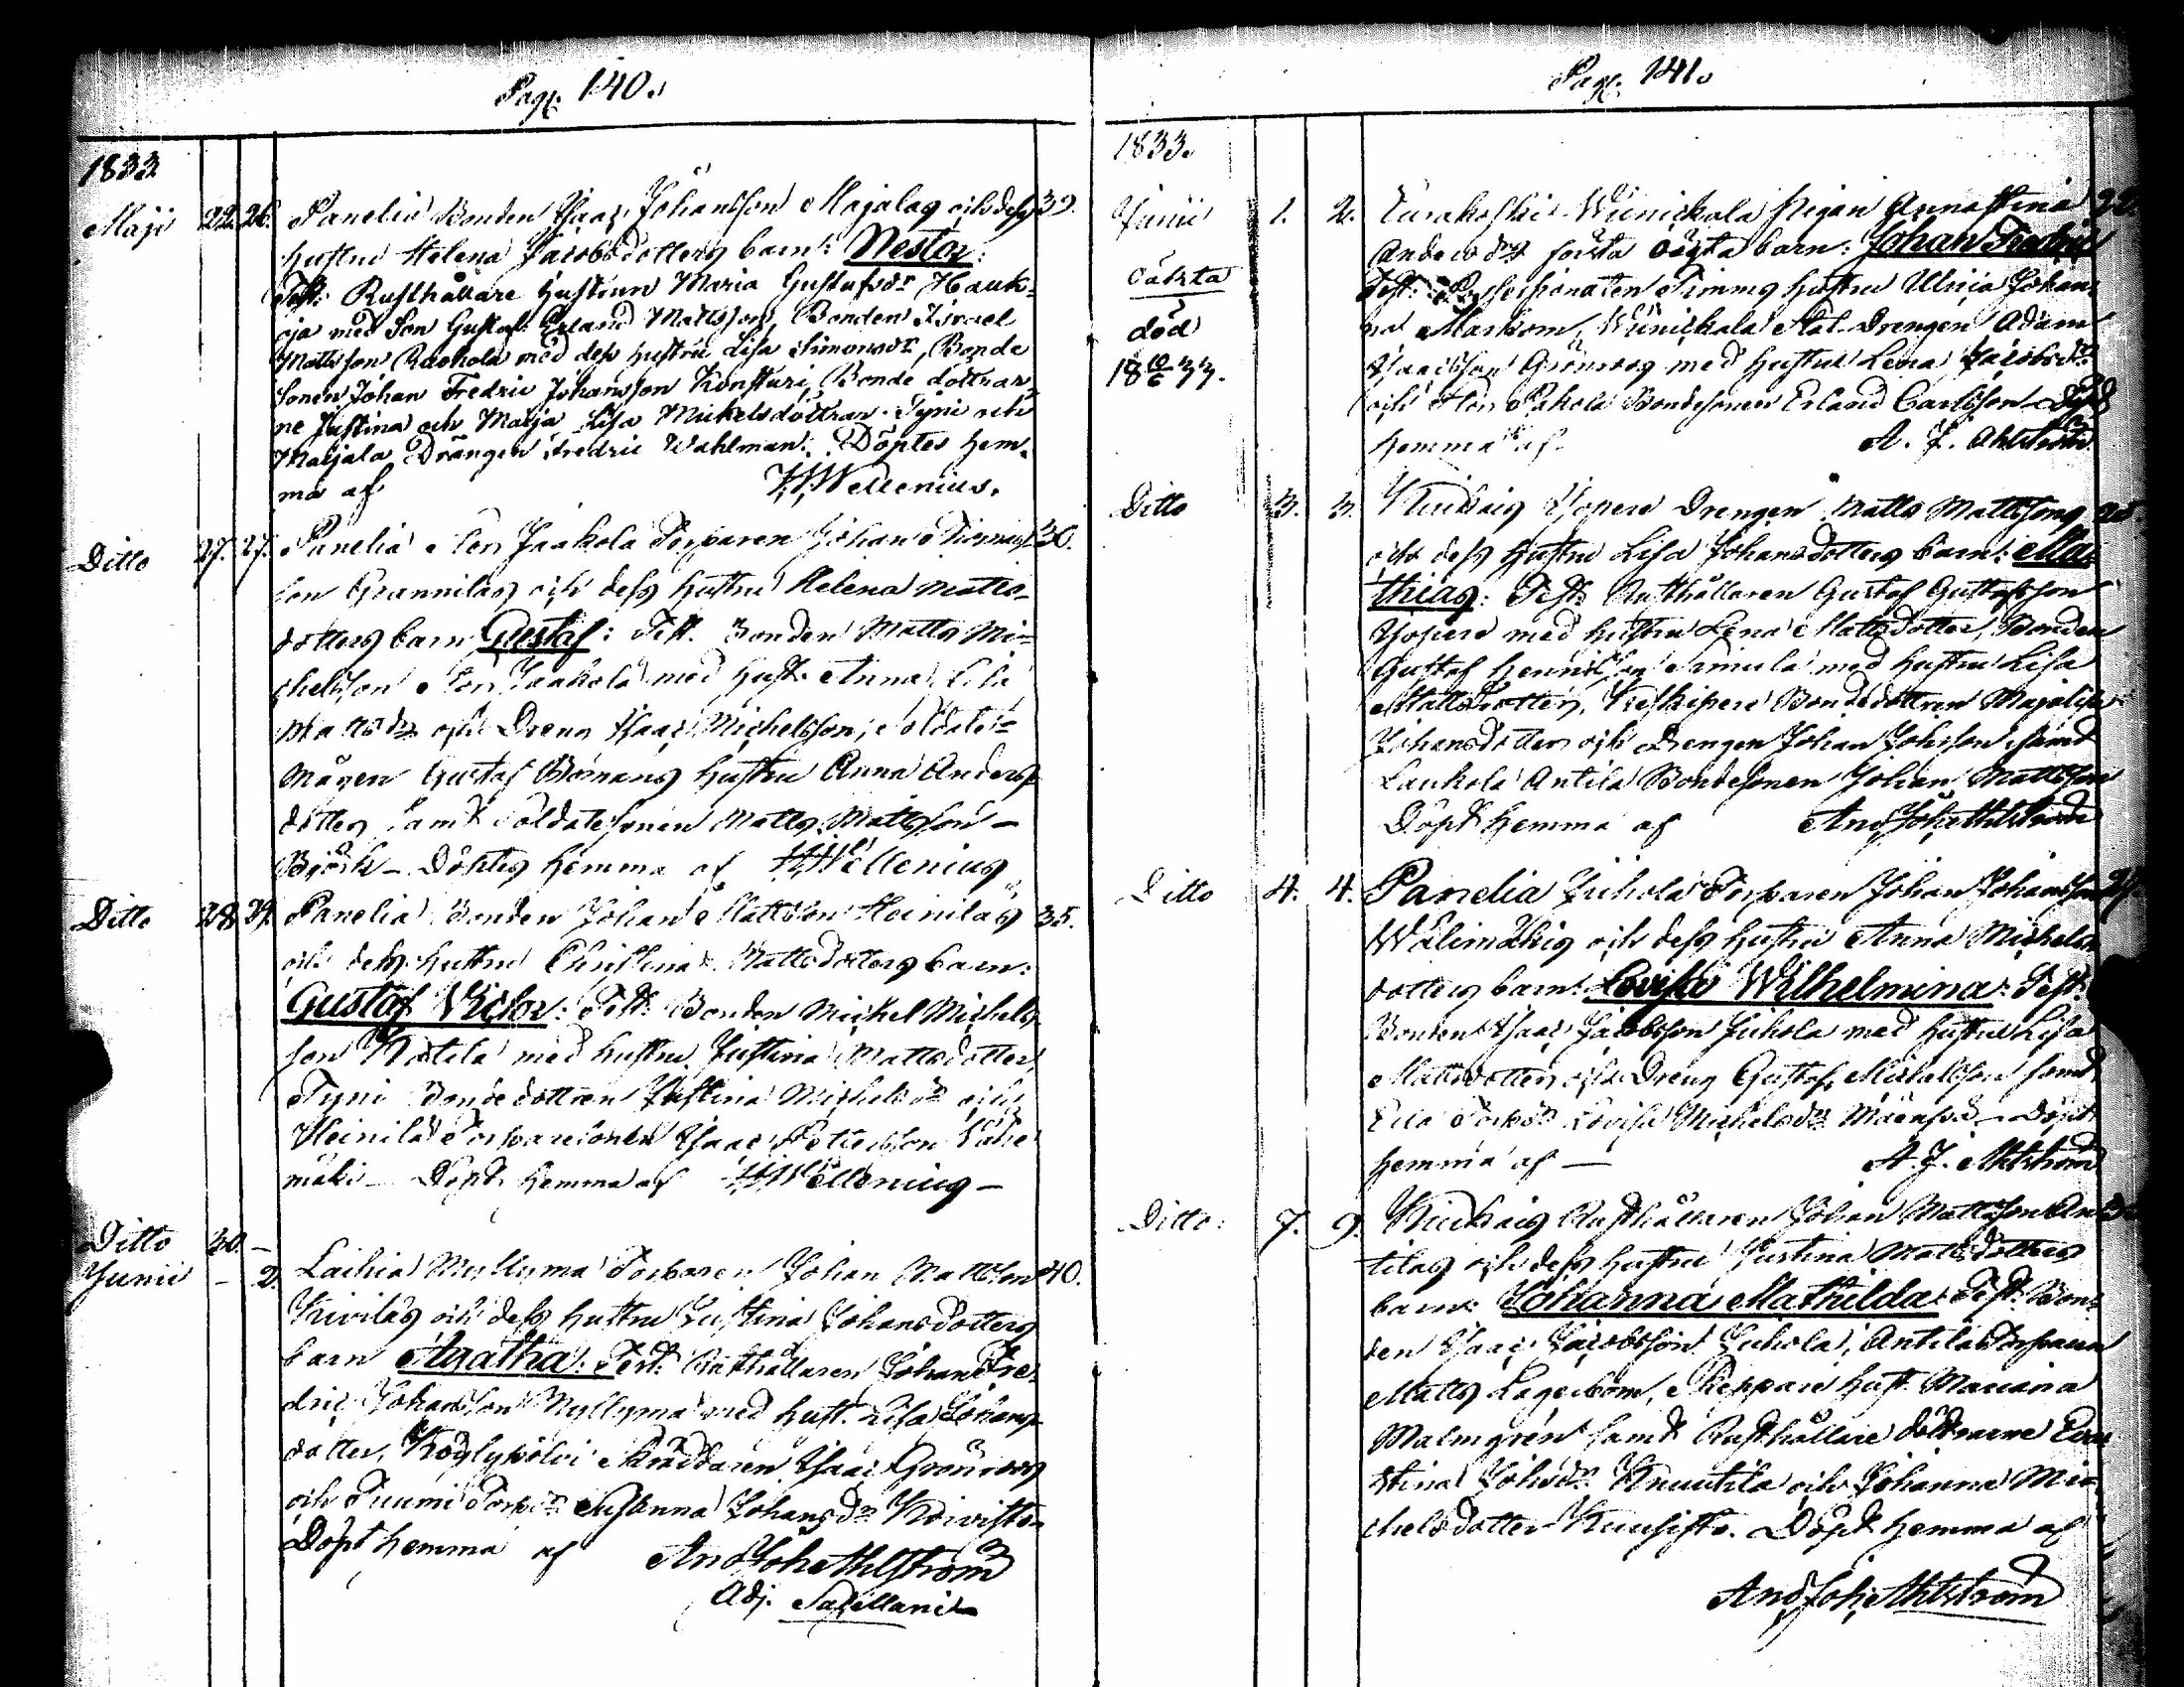 Pag. 140.
1833
Maji 22. 26. Panelia Bonden Isaac Johansson Majalas och dess 39.
hustru Helena Jacobsdotters barn: Nestor:
Test: Rusthållare hustrun Maria Gustafsdr Hauk-
oja med Son Gustaf. Erland Mattsson, Bonden Israel
Mattsson Raukola med dess hustru Lisa Simonsdr, Bonde
sonen Johan Fredric Johansson Konsturi, Bonde döttrar-
ne Justina och Maja Lisa Mickelsdöttrar Tyni och
Maijala Drängen Fredric Wahlman. Döptes hem-
ma af Wellenius.
Ditto 27. 27. Panelia Jaakola Torparen Johan Thomas- 30.
son Grannilas och dess hustru Helena Matts-
dotters barn Gustaf: Test. Bonden Matts Mi-
chelsson Jaakola med hust. Anna Lisa
Mattsdr och Dreng Isaac Michelsson, Soldats-
mågen Gustaf Bömans hustru Anna Anders-
dotter samt Soldatesonen Matts Mattsson
Björk - Döptes hemma af Wellenius
Ditto 28 29. Panelia Bonden Johan Mattsson Heinilas 35.
och dess hustru Christina Mattsdotters barn:
Gustaf Victor: Test: Bonden Michel Michels-
son Kotila med hustru Justina Mattsdotter,
Tyni Bondedottren Justina Michelsdr och
Heinilä Torparesonen Isaac Pettersson Välie
mäki - Döpt hemma af Wellenius -
Ditto 30. -
Junii - 2. Laihia Myllymä Torparen Johan Mattsson 40.
Kivilas och dess hustru Justina Johansdotters
barn Agatha: Test: Rusthållaren Johan Fre-
dric Johansson Myllymä med hust. Lisa Johans-
dotter, Köylypolvi Skräddaren Isaac Grönroos
och Tuumi Torpdr Susanna Johansdr Koivisto.
Döpt hemma af And Joh Ahlstrom
Adj. Sacellani
Pag. 141.
1833.
Junii 1. 2. Eurakoski Wiinickala Pigan Anna Stina 22.
Andersdrs första oägta barn: Johan Fredric
oäkta
död
18 10/6 33.
Test: Possessionaten Timms hustru Ulrica Johan-
na Markom, Wiinickala Stat-Drengen Adam
Isaacsson Grönroos med hustru Lena Jacobsdr
och Pakola Bondesonen Erland Carlsson - Döpt
hemma af. A. J. Ahlström
Ditto 3. 3. Kiukais Yopere Drengen Matts Mattssons 25.
och dess hustru Lisa Johansdotters barn: Mat-
thias: Test: Rusthållaren Gustaf Gustafsson
Yopere med hustru Lena Mattsdotter, Bonden
Gustaf Henricsson Simula med hustru Lisa
Mattsdotter, Bondedottren Majalisa
Johansdotter och Drengen Johan Johsson samt
Laukola Antila Bondesonen Johan Mattsson
Döpt hemma af And Joh Ahlstrom
Ditto 4. 4. Panelia Juhola Torparen Johan Johansson
Wälimäkis och dess hustru Anna Michels-
dotters barn: Lovisa Wilhelmina: Test:
Bonden Isaac Jacobsson Juhola med hustru Lisa
Mattsdotter och Dreng Gustaf Michelsson samt
Torpdr Lovisa Michelsdr Mäenpä - Döpt
hemma af - A. J. Ahlström
Ditto: 7. 9. Kiukais Rusthållaren Johan Mattsson An-
tilas och dess hustru Justina Mattsdotters
barn: Johanna Mathilda: Test: Bon-
den Isaac Jacobsson Juhola, Antila Torparen
Matts Lagerbom, Skeppare hust. Mariana
Malmgrén samt Rusthållare döttrarne Eva
Stina Johsdr Knuutila och Johanna Mi-
chelsdotter Kuusisto. Döpt hemma af
And Joh Ahlstrom